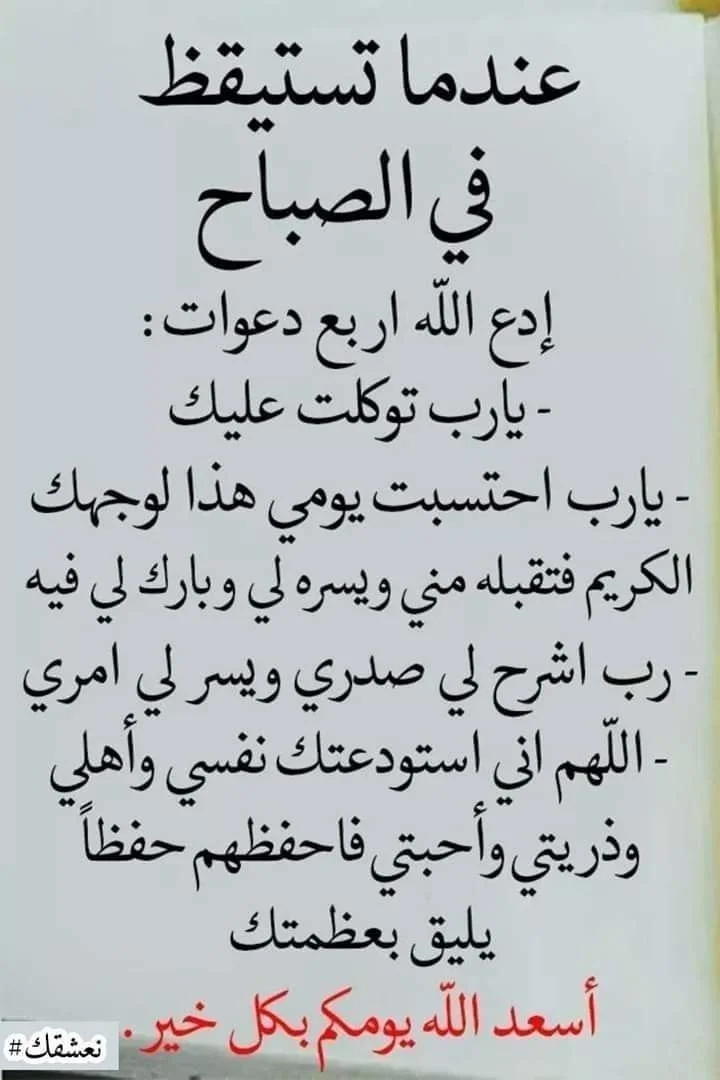 عندما تستيقظ
في الصباح
إدع اللّه اربع دعوات :
- يارب توكلت عليك
- يارب احتسبت يومي هذا لوجهك
الكريم فتقبله مني ويسره لي وبارك لي فيه
- رب اشرح لي صدري ويسر لي امري
- اللّهم اني استودعتك نفسي وأهلي
وذريتي وأحبتي فاحفظهم حفظاً
يليق بعظمتك
أسعد اللّه يومكم بكل خير .
#نعشقك